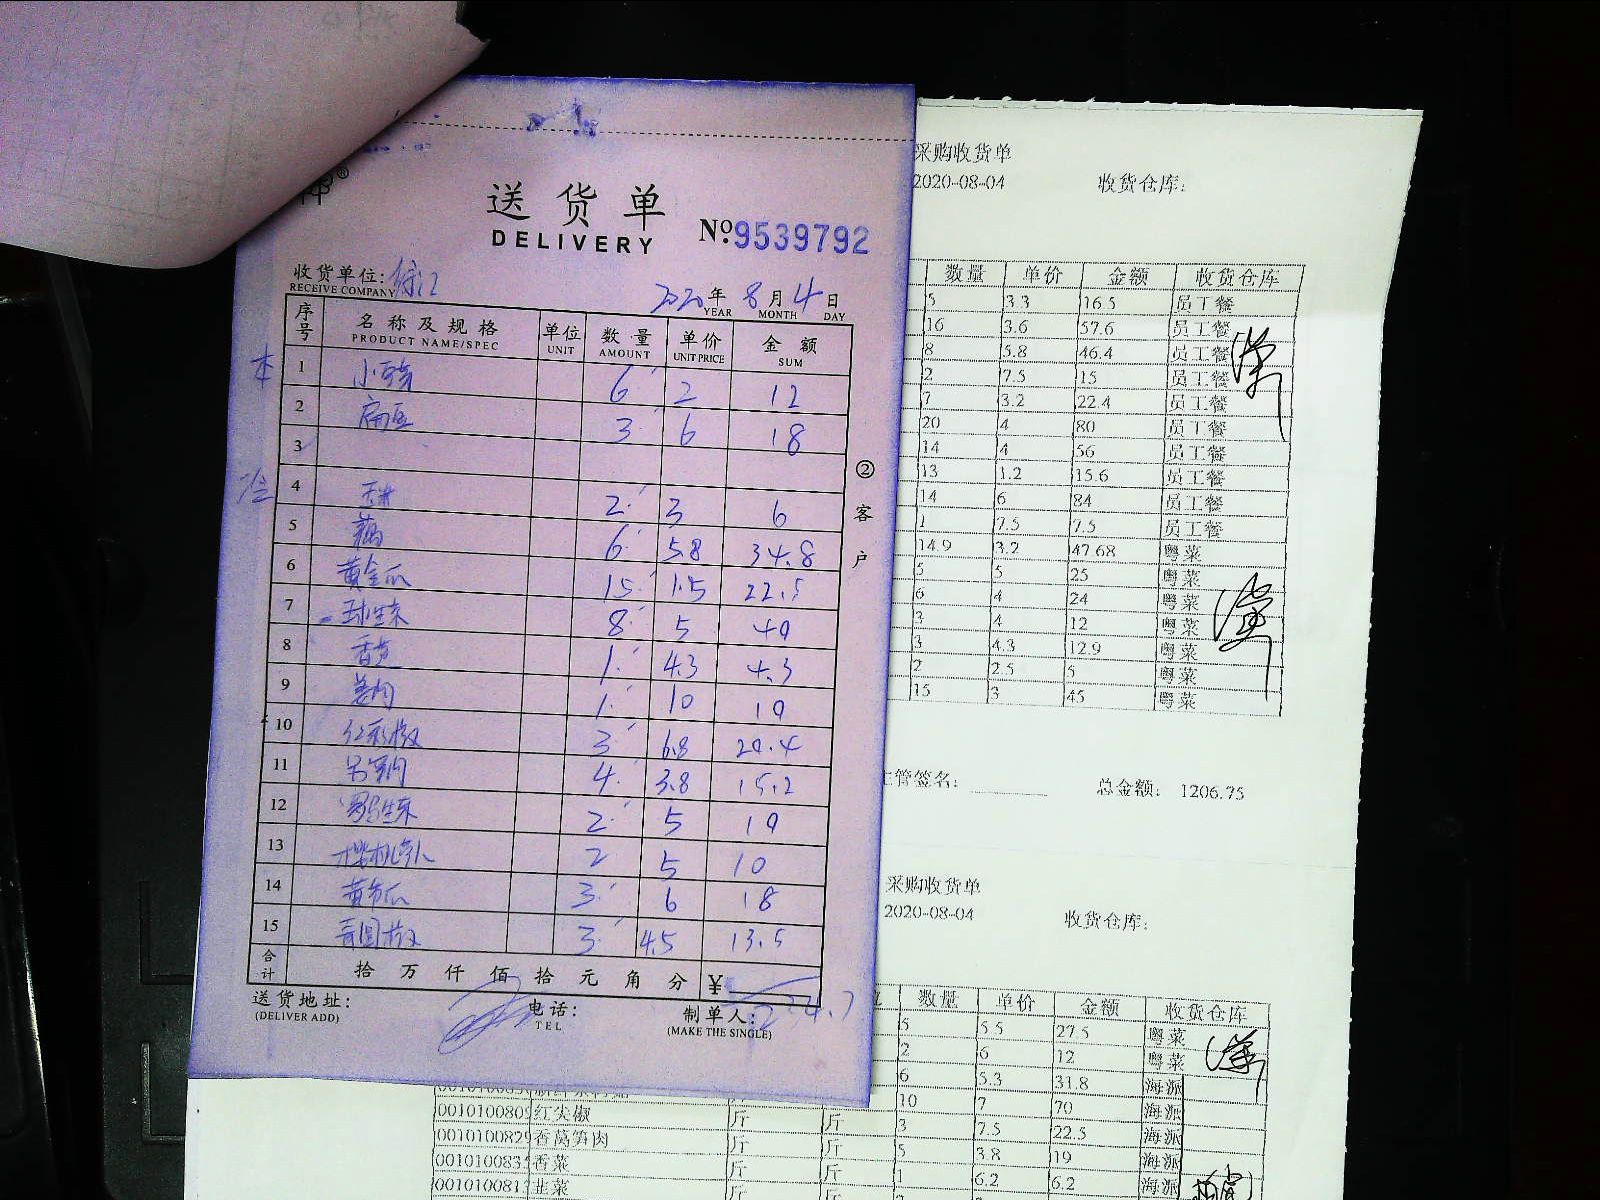 送货单
DELIVERY
№:9539792
收货单位:徐汇
RECEIVE COMPANY
2020年8月4日
YEAR MONTH DAY
序号 名称及规格 单位 数量 单价 金额
PRODUCT NAME/SPEC UNIT AMOUNT UNIT PRICE SUM
本
1 6 2 12
2 扁豆 3 6 18
3
冷
4 2 3 6
5 藕 6 5.8 34.8
6 黄金瓜 15 1.5 22.5
7 球生菜 8 5 40
8 1 4.3 4.3
9 1 10 10
10 红彩椒 3 6.8 20.4
11 4 3.8 15.2
12 罗马生菜 2 5 10
13 2 5 10
14 黄节瓜 3 6 18
15 青圆椒 3 4.5 13.5
合计 拾万仟佰拾元角分 ¥
送货地址:
(DELIVER ADD)
电话:
TEL
制单人:
(MAKE THE SINGLE)
②客户
采购收货单
2020-08-04 收货仓库:
数量 单价 金额 收货仓库
5 3.3 16.5 员工餐
16 3.6 57.6 员工餐
8 5.8 46.4 员工餐
2 7.5 15 员工餐
7 3.2 22.4 员工餐
20 4 80 员工餐
14 4 56 员工餐
13 1.2 15.6 员工餐
14 6 84 员工餐
1 7.5 7.5 员工餐
14.9 3.2 47.68 粤菜
5 5 25 粤菜
6 4 24 粤菜
3 4 12 粤菜
3 4.3 12.9 粤菜
2 2.5 5 粤菜
15 3 45 粤菜
主管签名: 总金额: 1206.75
采购收货单
2020-08-04 收货仓库:
数量 单价 金额 收货仓库
5 5.5 27.5 粤菜
2 6 12 粤菜
6 5.3 31.8 海派
10 7 70 海派
0010100809 红尖椒 斤 斤 3 7.5 22.5 海派
0010100829 香莴笋肉 斤 斤 5 3.8 19 海派
001010083 香菜 斤 斤 1 6.2 6.2
001010081 韭菜 斤 斤